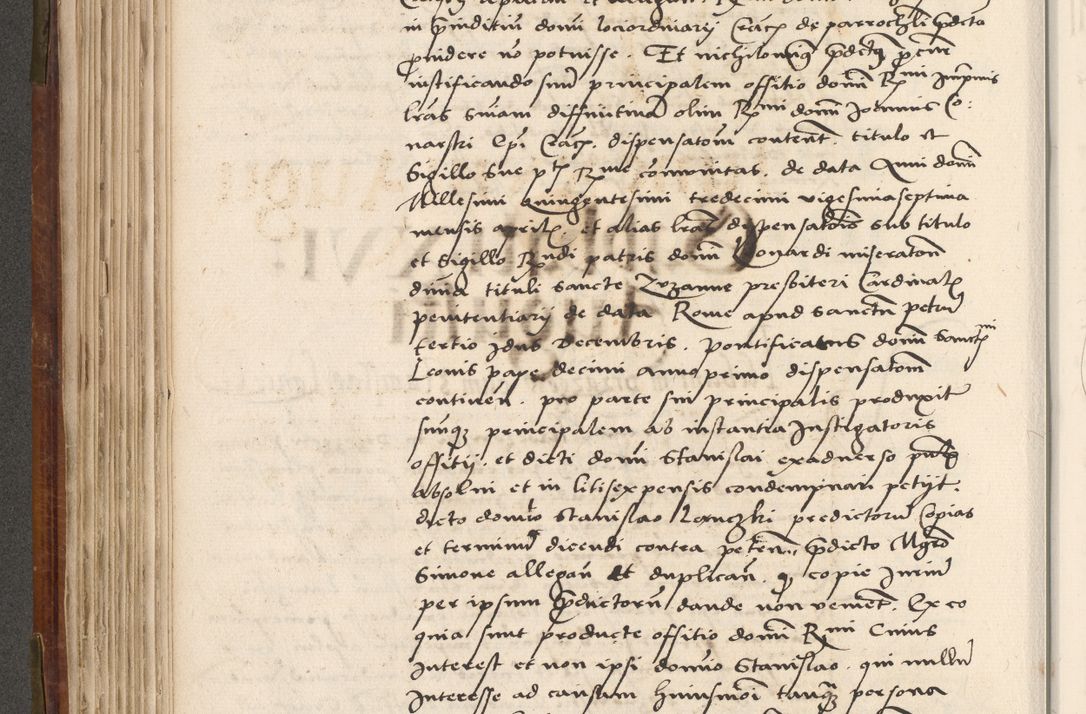 in p̄iuditiū domī lociordinarij Crac̄ de parrochli p̄dcta
p̄uidere nō potuisse. Et nichilomin9 p̄dct9 p̄cur
iustificando suū principalem offitio domī Rmi Inprimis
lr̄as Sn̄iam diffinitiuā olim Rmi domī Joannis Co:
narski Ep̄i Crac̄. dispensatoru content. titulo et
Sigillo sue p̄t Rme com̄unitas. de data Anni domī
Millesimi quingentesimi tredecimi vigesimaseptima
mensis aprilis. et alias lr̄as dispensatōis sub titulo
et Sigillo Rndi patris domī Leonardi miseratōn
diuīa tituli sancte Zuzanne presbiteri Cardinalis
penitentiarij de data Rome apud Sanctū petrū
tertio Idus Decembris. pontificatus domī Sanctmi
Leonis pape decimi anno primo dispensatoru
continen̄. pro parte sui principalis produxit
suūq3 principalem ab instantia Instigatoris
offitij. et dicti domī Stanislai exaduerso pn̄t
absolui et in litisexpensis condempnari petijt.
dicto domīo Stanislao predictorū Copias
et terminū dicendi contra peten̄. p̄dicto Mgro
Simone allegan̄ et duplican̄. q copie Iuriū
per ipsum p̄ductorū dande non veniēt. Ex eo
quia sunt producte offitio domī Rmi Cuius
Interest et non ipsi domīo Stanislao. qui nullū
Interesse ad causam huiusmōi tanq3 persona